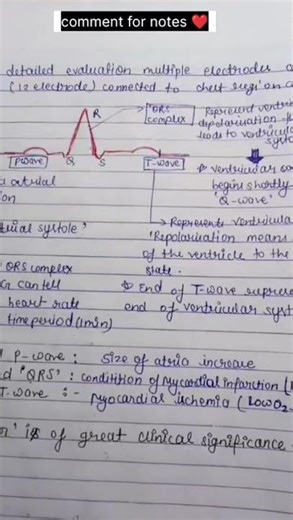 comment for notes ❤️
detailed evaluation multiple electrodes
(12 electrode) connected to chest region
R
QRS complex
Represent ventri
depolarisation
leads to ventricula
systo
P wave
Q
S
T-wave
atrial
ion
ventricular co
begins shortly
'Q-wave'
Represents ventricula
systole'
'Repolarisation means
of the ventricle to the
state.
QRS complex
can tell
heart rate
time period (1min)
End of T-wave represe
end of ventricular syst
P-wave : size of atria increase
"QRS" : condidition of Myocardial infarction (
T. wave : - Myocardial ischemia ( Low O2
is of great clinical significance.